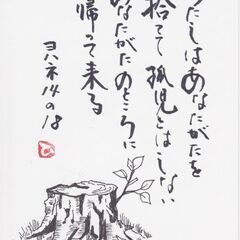 わたしはあなたがたを
捨てて孤児とはしない
あなたがたのところに
帰って来る
ヨハネ14の18